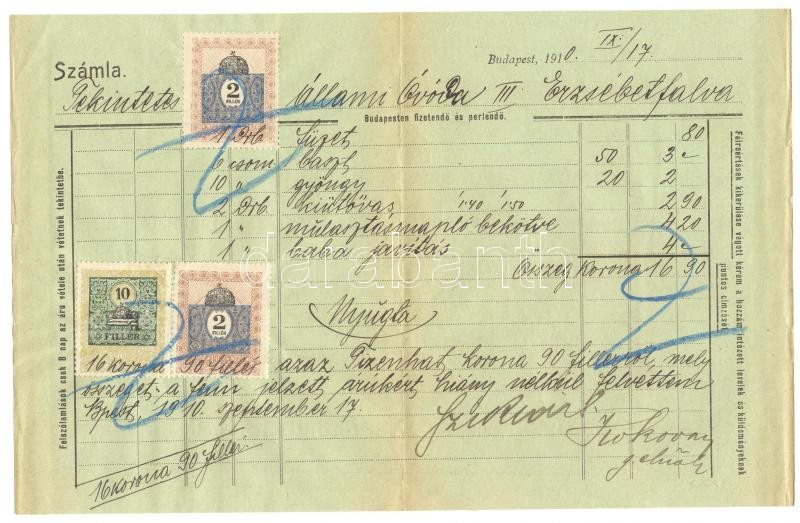 Budapest, 1910. IX./17.
Számla.
Tekintetes Állami Óvóda III Erzsébetfalva
Budapesten fizetendő és perlendő.
1 Drb. füzet 80
6 csom 50 3
10 " gyöngy 20 2
2 Drb. 1·40 1·50 2 90
1 " mulasztásnapló bekötve 4 20
1 " baba javitás 4
Összeg korona 16 90
Nyugta
16 korona 90 fillér azaz Tizenhat korona 90 fillérről, mely
összeget a fenn jelzett árukért hiány nélkül felvettem
Bpest, 1910. szeptember 17.
16 korona 90 fillér
2
FILLÉR
10
FILLÉR
2
FILLÉR
Felszólamlások csak 8 nap az áru vétele után vétetnek tekintetbe.
Félreértések kikerülése végett kérem a hozzám intézett levelek és küldeményeknek
pontos címzését.
darabanth